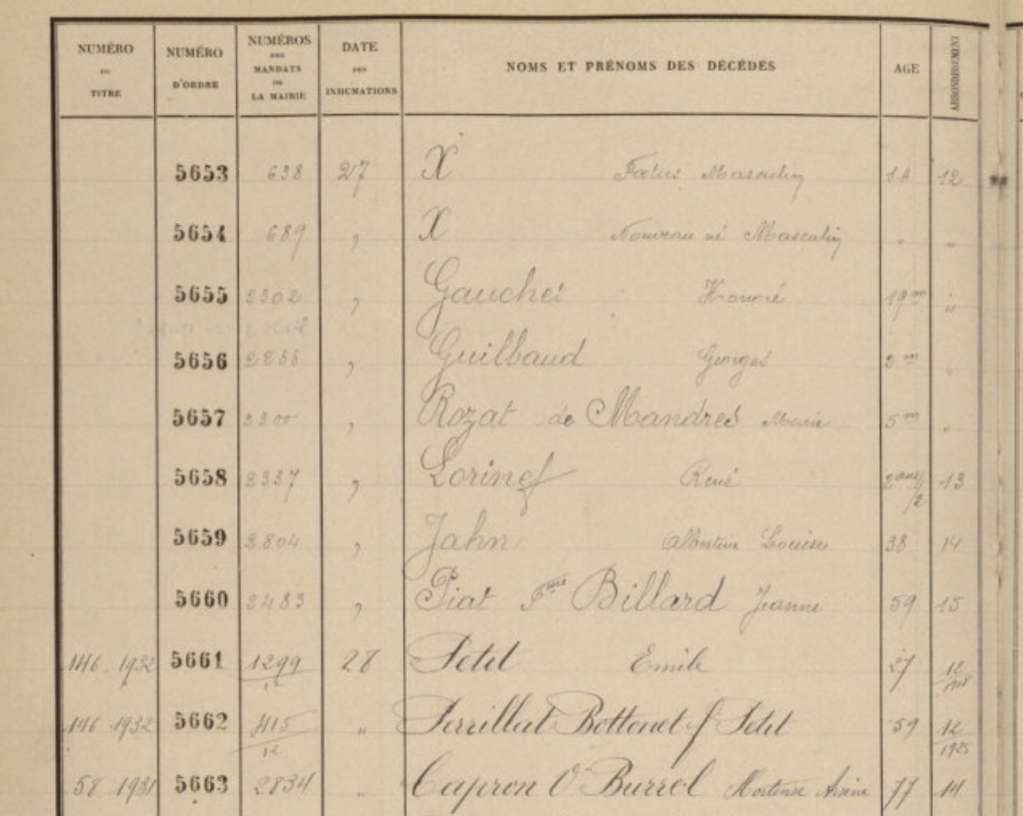 NUMÉRO DU TITRE NUMÉRO D'ORDRE NUMÉROS DES MANDATS DE LA MAIRIE DATE DES INHUMATIONS NOMS ET PRÉNOMS DES DÉCÉDÉS AGE ARRONDISSEMENT
5653 638 27 X Fœtus Masculin 12
5654 689 " X Nouveau né Masculin " "
5655 2302 " Gaucher Honoré 19 m "
5656 " Guilbaud Georges 3 m "
5657 " Rozat de Mandres Marie 5 m "
5658 2337 " Lorinet René 2 ans 1/2 13
5659 2804 " Jahn Albertine Louise 38 14
5660 2483 " Piat Fme Billard Jeanne 59 15
146 1932 5661 1299/12 28 Petit Emile 27 12
146 1932 5662 415/12 " Perrillat Bottonet f Petit 59 12/1925
58 1931 5663 2834 " Capron V Burrel Hortense Arsène 77 14